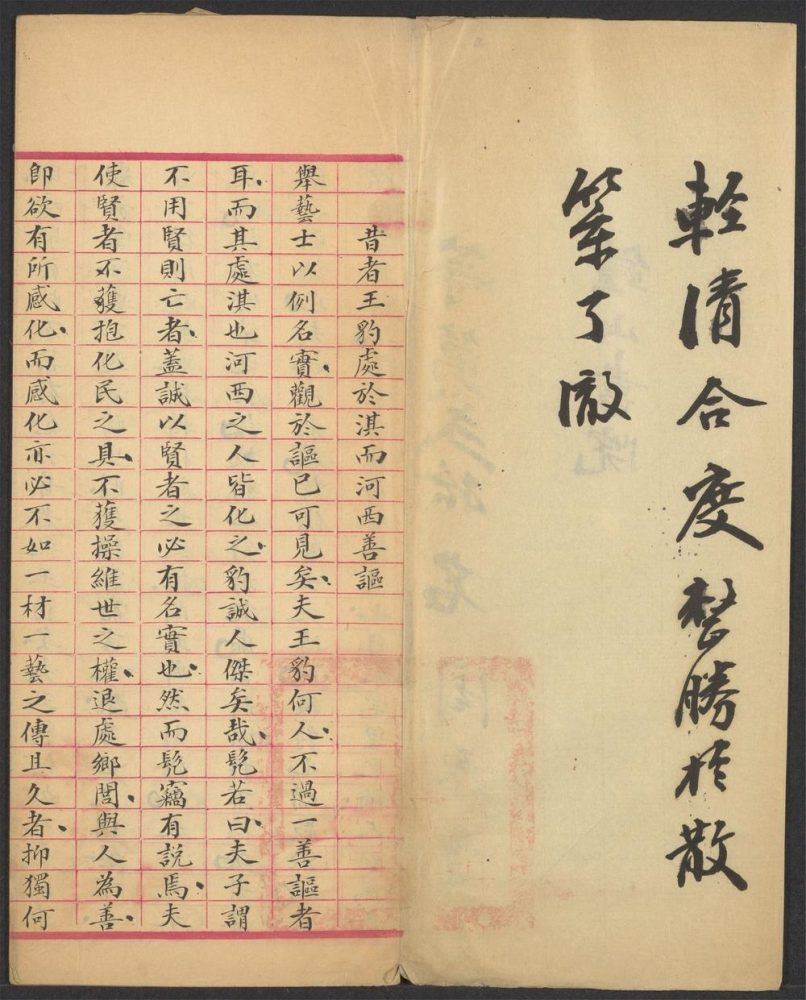 輕清合度整勝於散
筆了澈
昔者王豹處於淇而河西善謳
舉藝士以例名實觀於謳已可見矣夫王豹何人不過一善謳者
耳而其處淇也河西之人皆化之豹誠人傑矣哉髡若曰夫子謂
不用賢則亡者蓋誠以賢者之必有名實也然而髡竊有説焉夫
使賢者不獲抱化民之具不獲操維世之權退處鄉閭與人為善
即欲有所感化而感化亦必不如一材一藝之傳且久者抑獨何